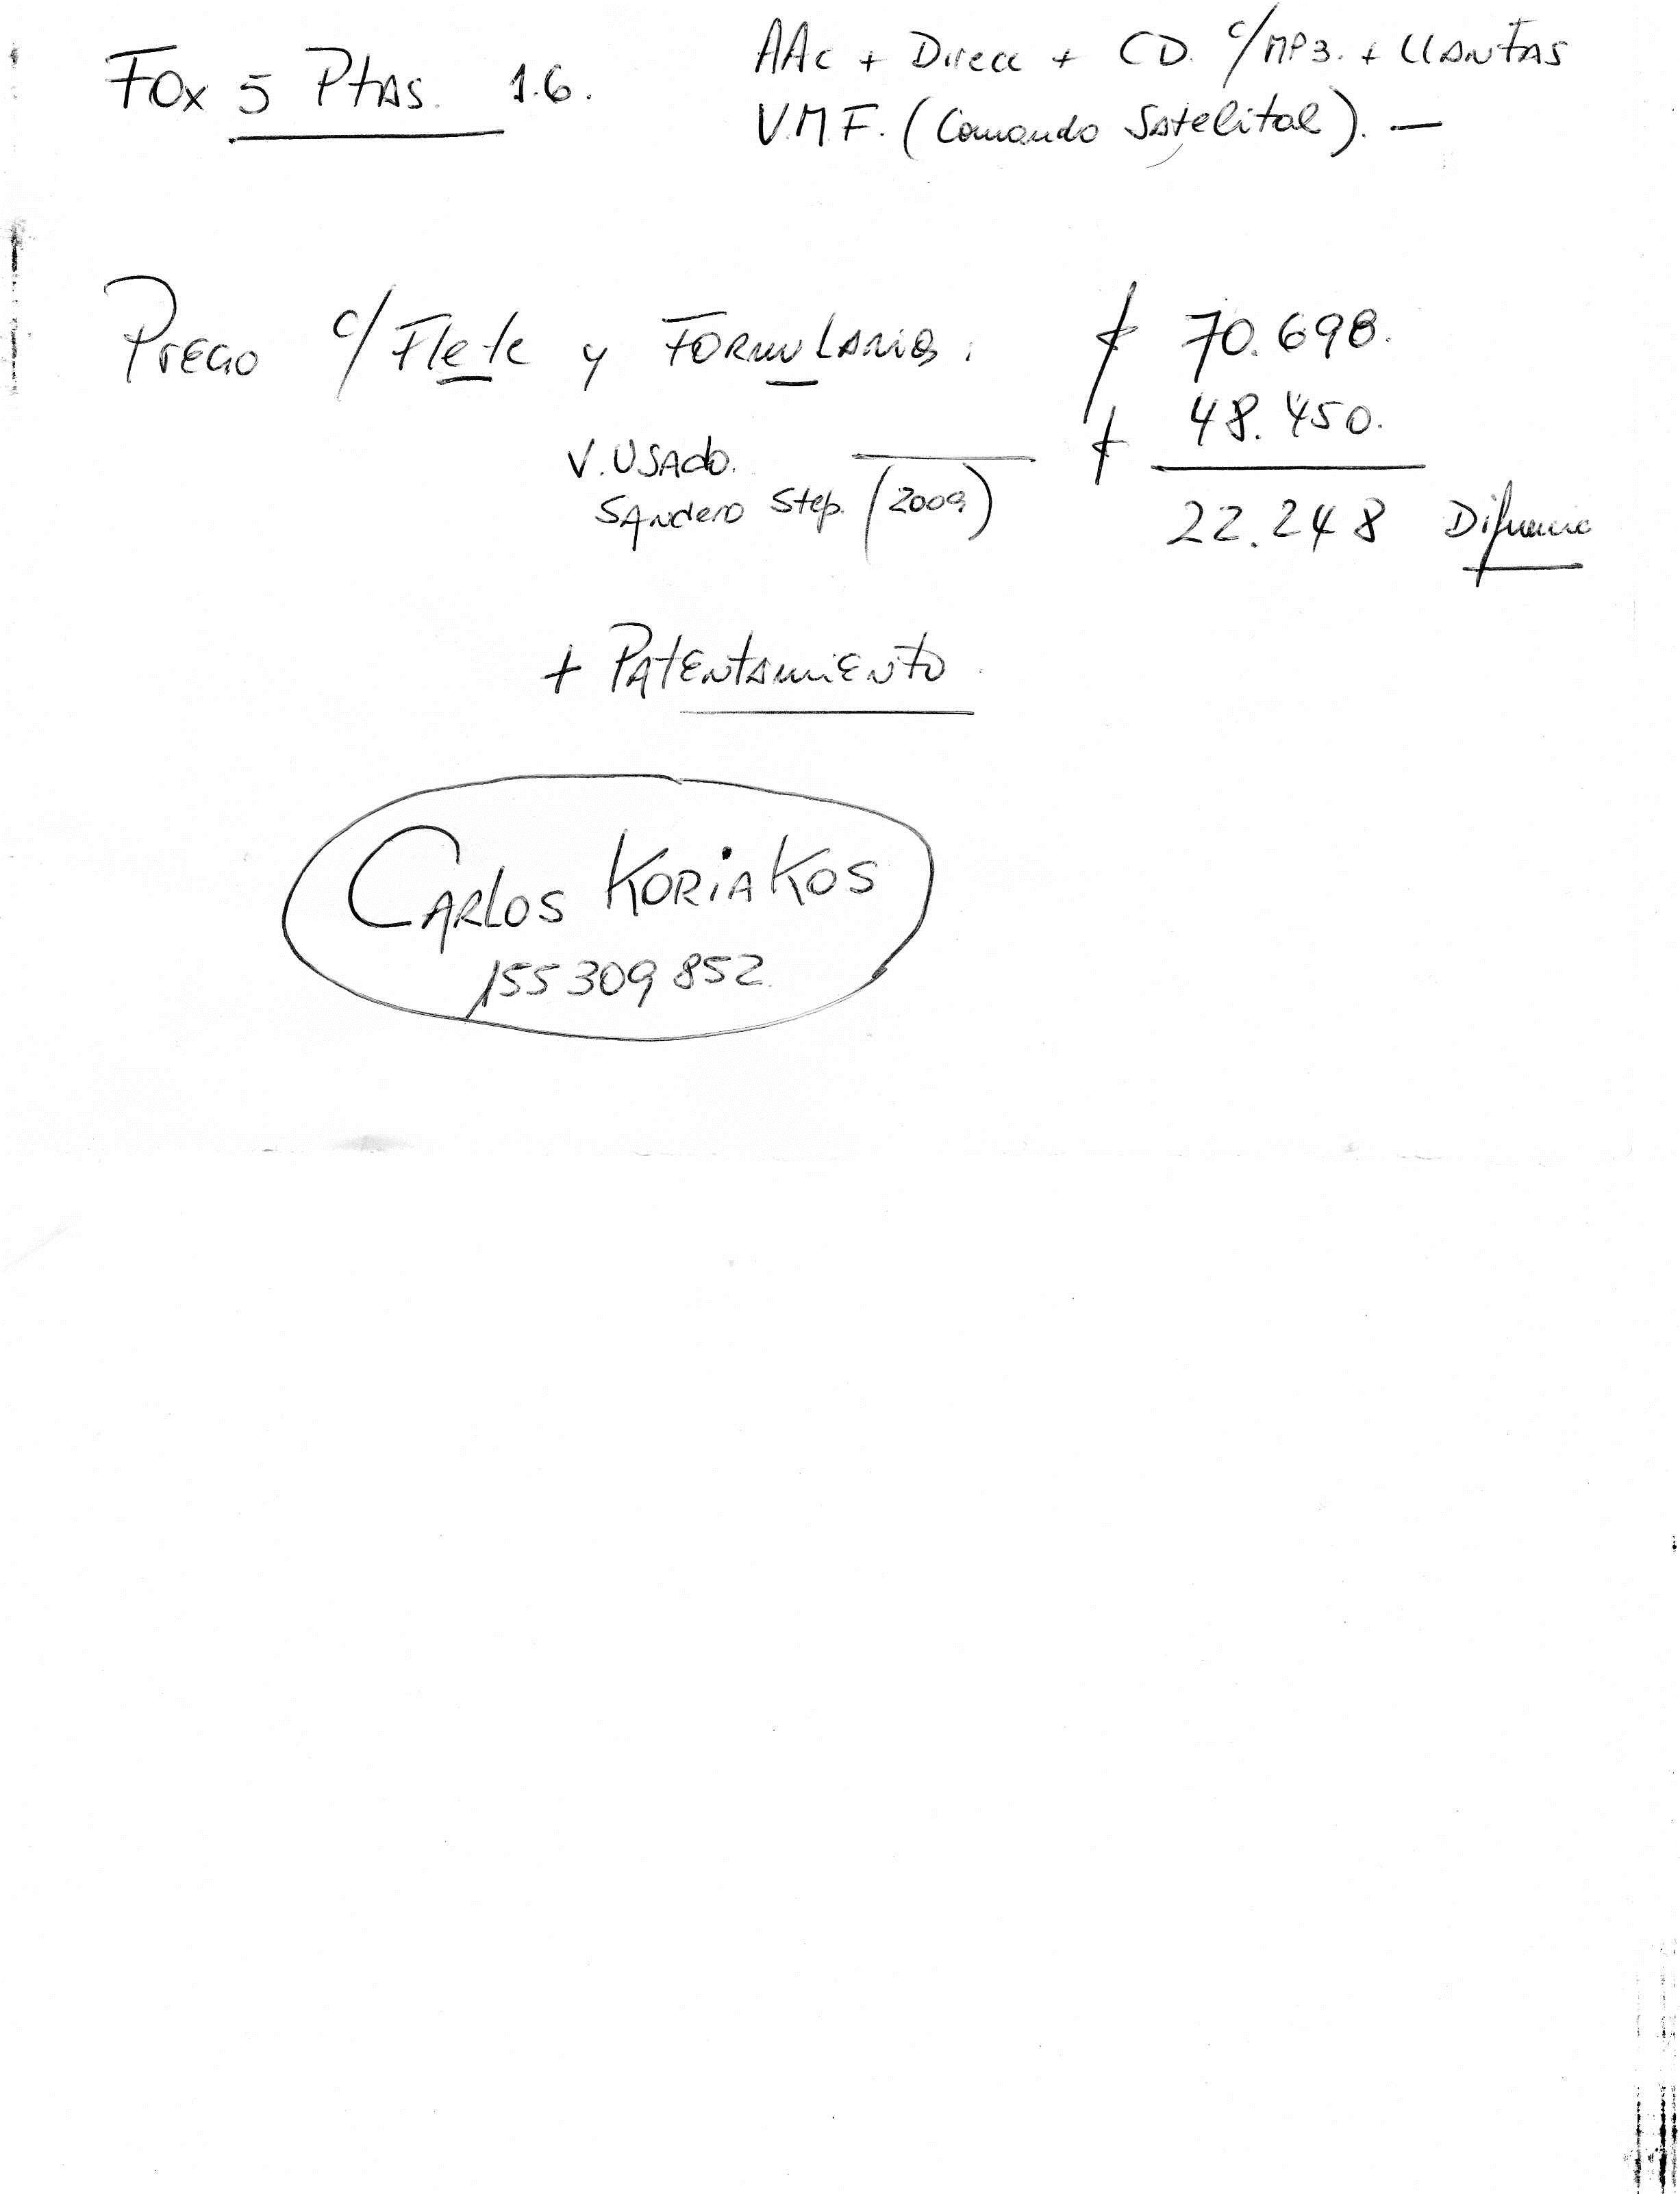 Fox 5 Ptas. 1.6.
AAc + Direcc + CD. c/MP3. + LLANTAS
V.M.F. (Comando Satelital). —
Precio c/Flete y Formularios: $ 70.698.
V. USAdo. $ 48.450.
SANdero Step. (2009)
22.248 Diferencia
+ PAtENtAmiENto.
CARLOS KORiAKOS
155309852.